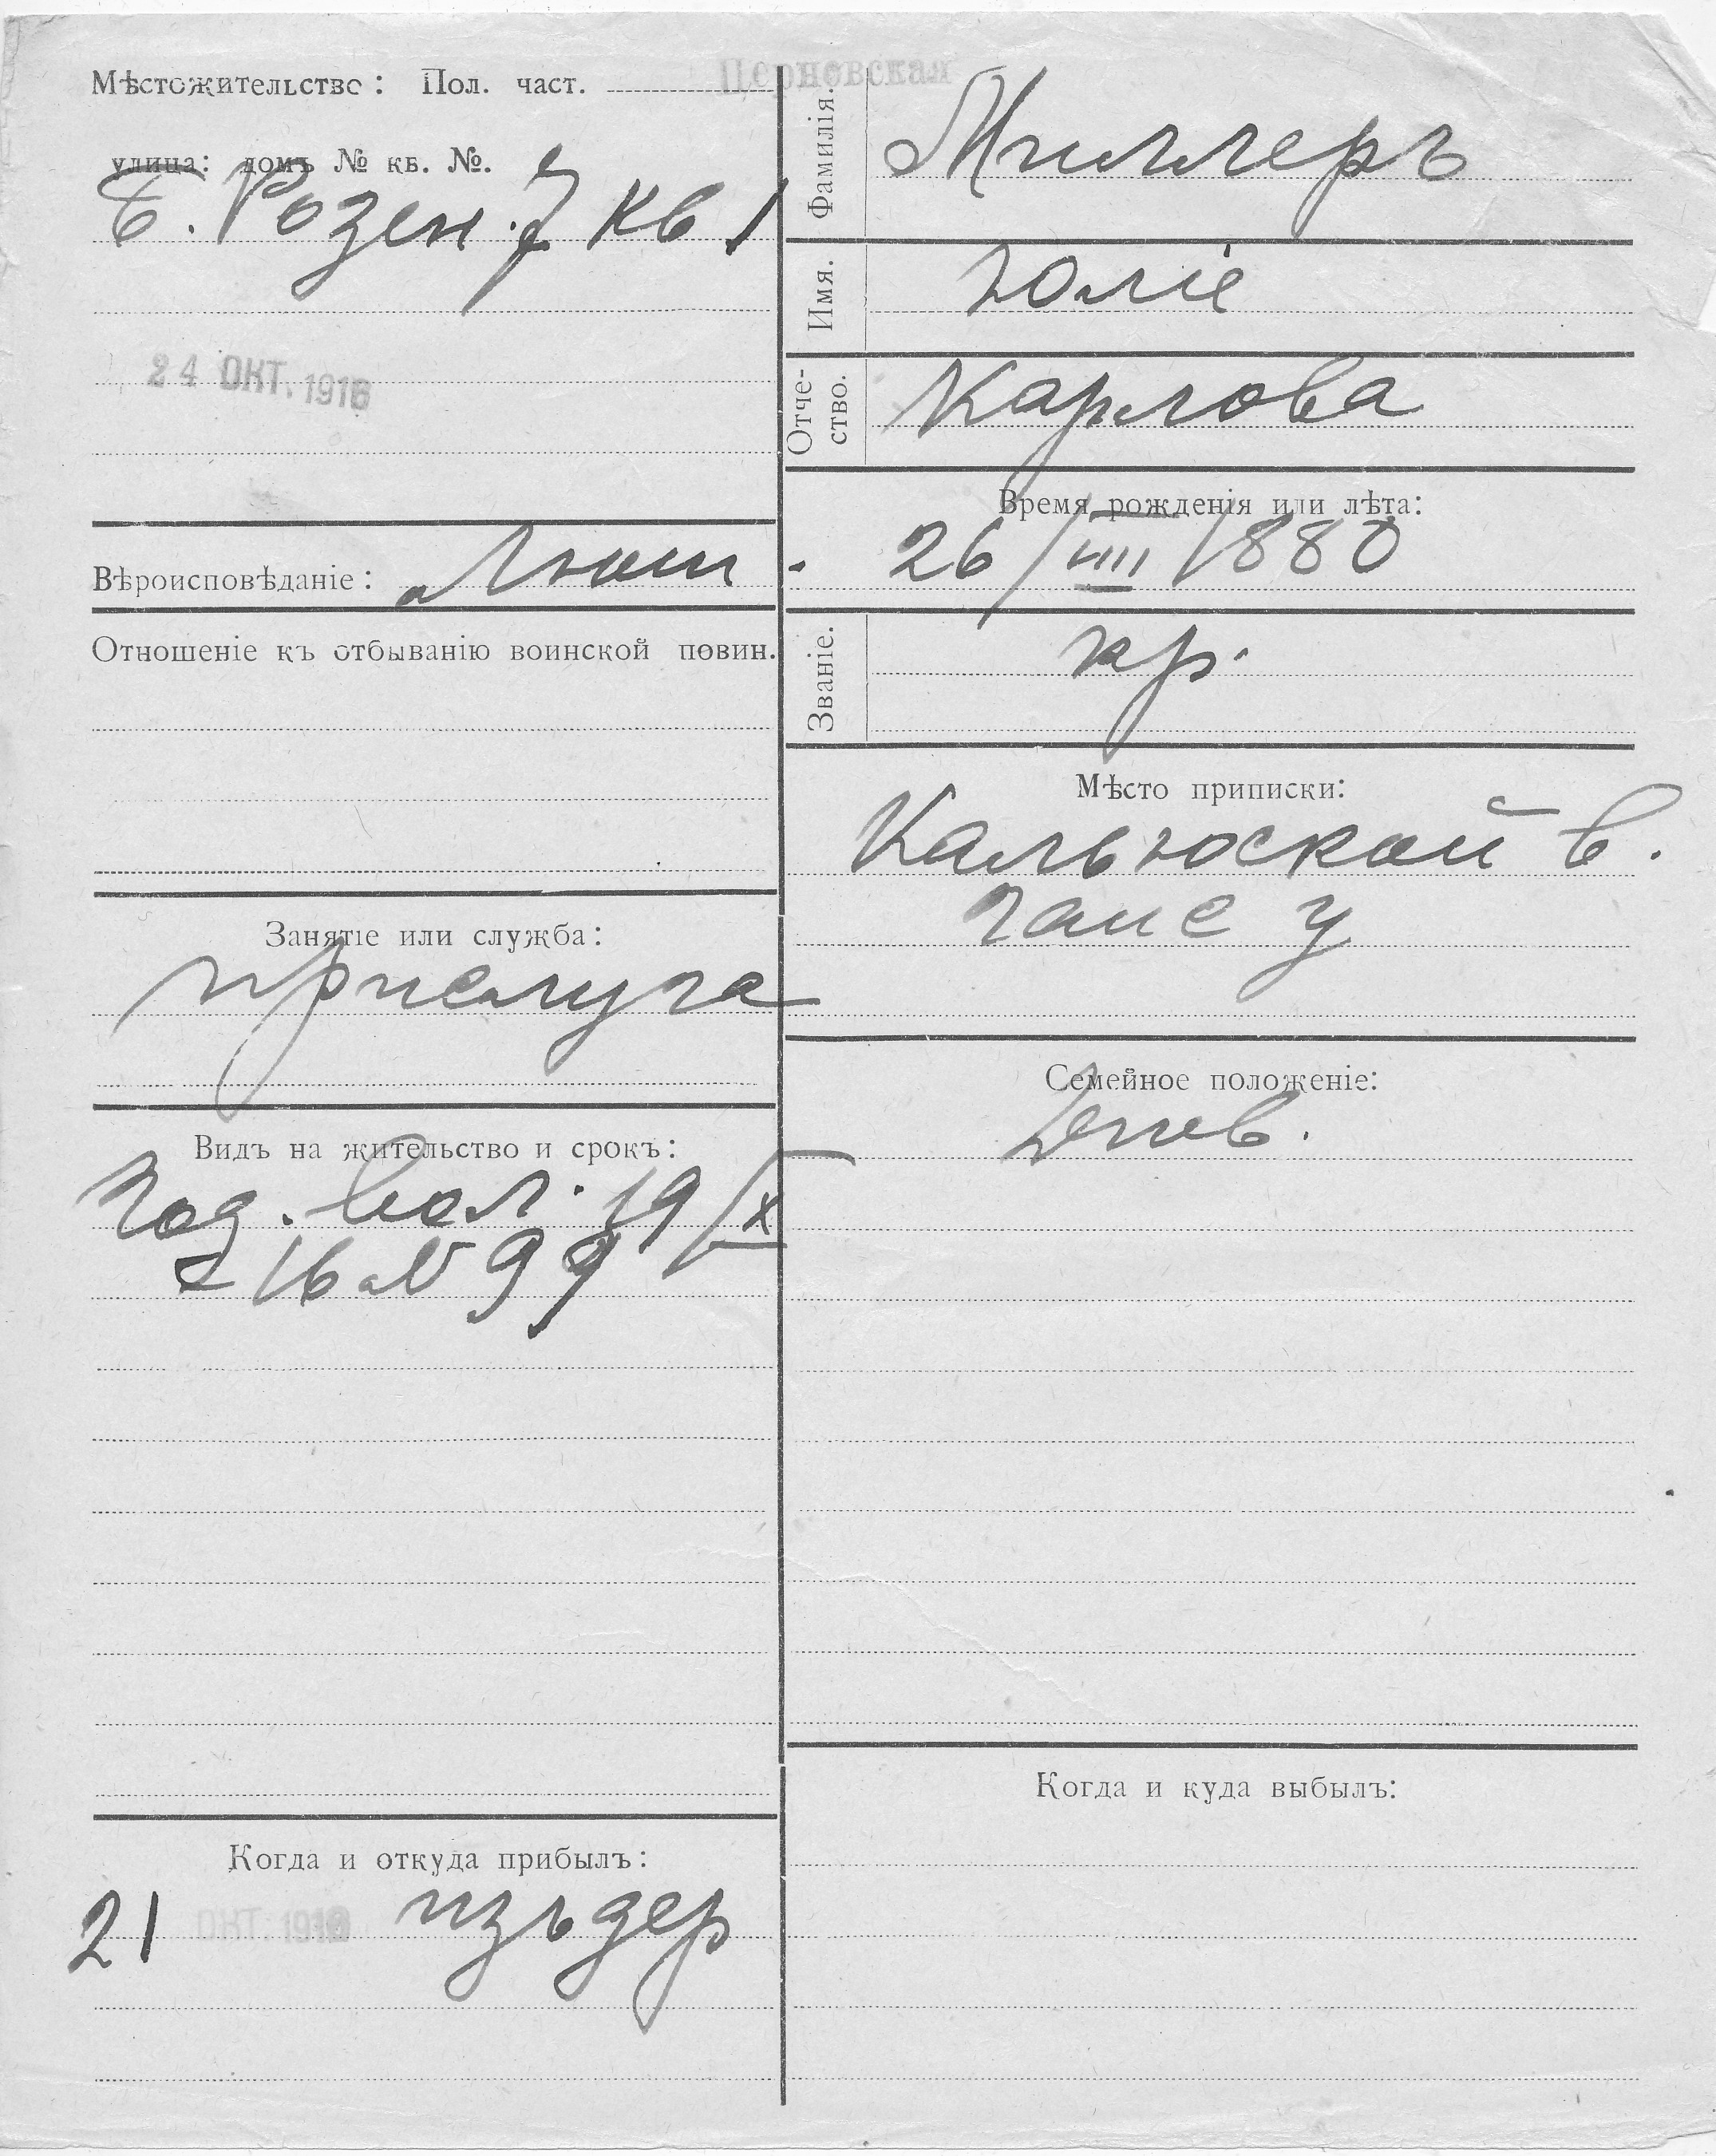 Мѣстожительство: Пол. част.
Церновская
улица: домъ № кв. №.
Б. Розен. 7 кв 1
24 ОКТ. 1916
Вѣроисповѣданіе: Лют.
Отношеніе къ отбыванію воинской повин.
Занятіе или служба:
прислуга
Видъ на жительство и срокъ:
Год. вол. 19/IX
16 № 99
Когда и откуда прибылъ:
21 ОКТ. 1916 изъ дер
Фамилія. Миллеръ
Имя. Юліе
Отче-
ство. Карлова
Время рожденія или лѣта:
26/IIII 1880
Званіе. кр.
Мѣсто приписки:
Кальюской в.
Гапс у
Семейное положеніе:
Дѣв.
Когда и куда выбылъ: